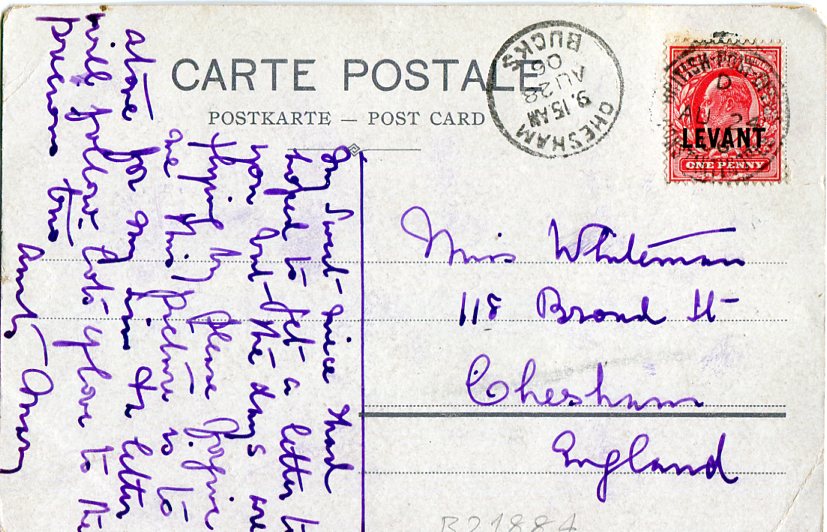 CARTE POSTALE
POSTKARTE — POST CARD
CHESHAM
9.15 AM
AU 28
06
BUCKS
BRITISH POST OFFICE
D
AU 24
LEVANT
ONE PENNY
My Sweet niece I had
hoped to get a letter to
you but the days are
flying by please forgive
me this picture is to
atone for my sins the letter
will follow. Lots of love to the
precious trio
Aunty
Miss Whiteman
118 Broad St
Chesham
England
B21884